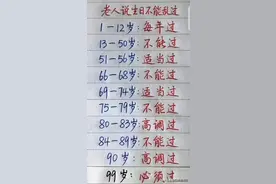 老人说生日不能乱过
1-12岁:每年过
13-50岁:不能过
51-56岁:适当过
66-68岁:不能过
69-74岁:适当过
75-79岁:不能过
80-83岁:高调过
84-89岁:不能过
90岁:高调过
99岁:必须过